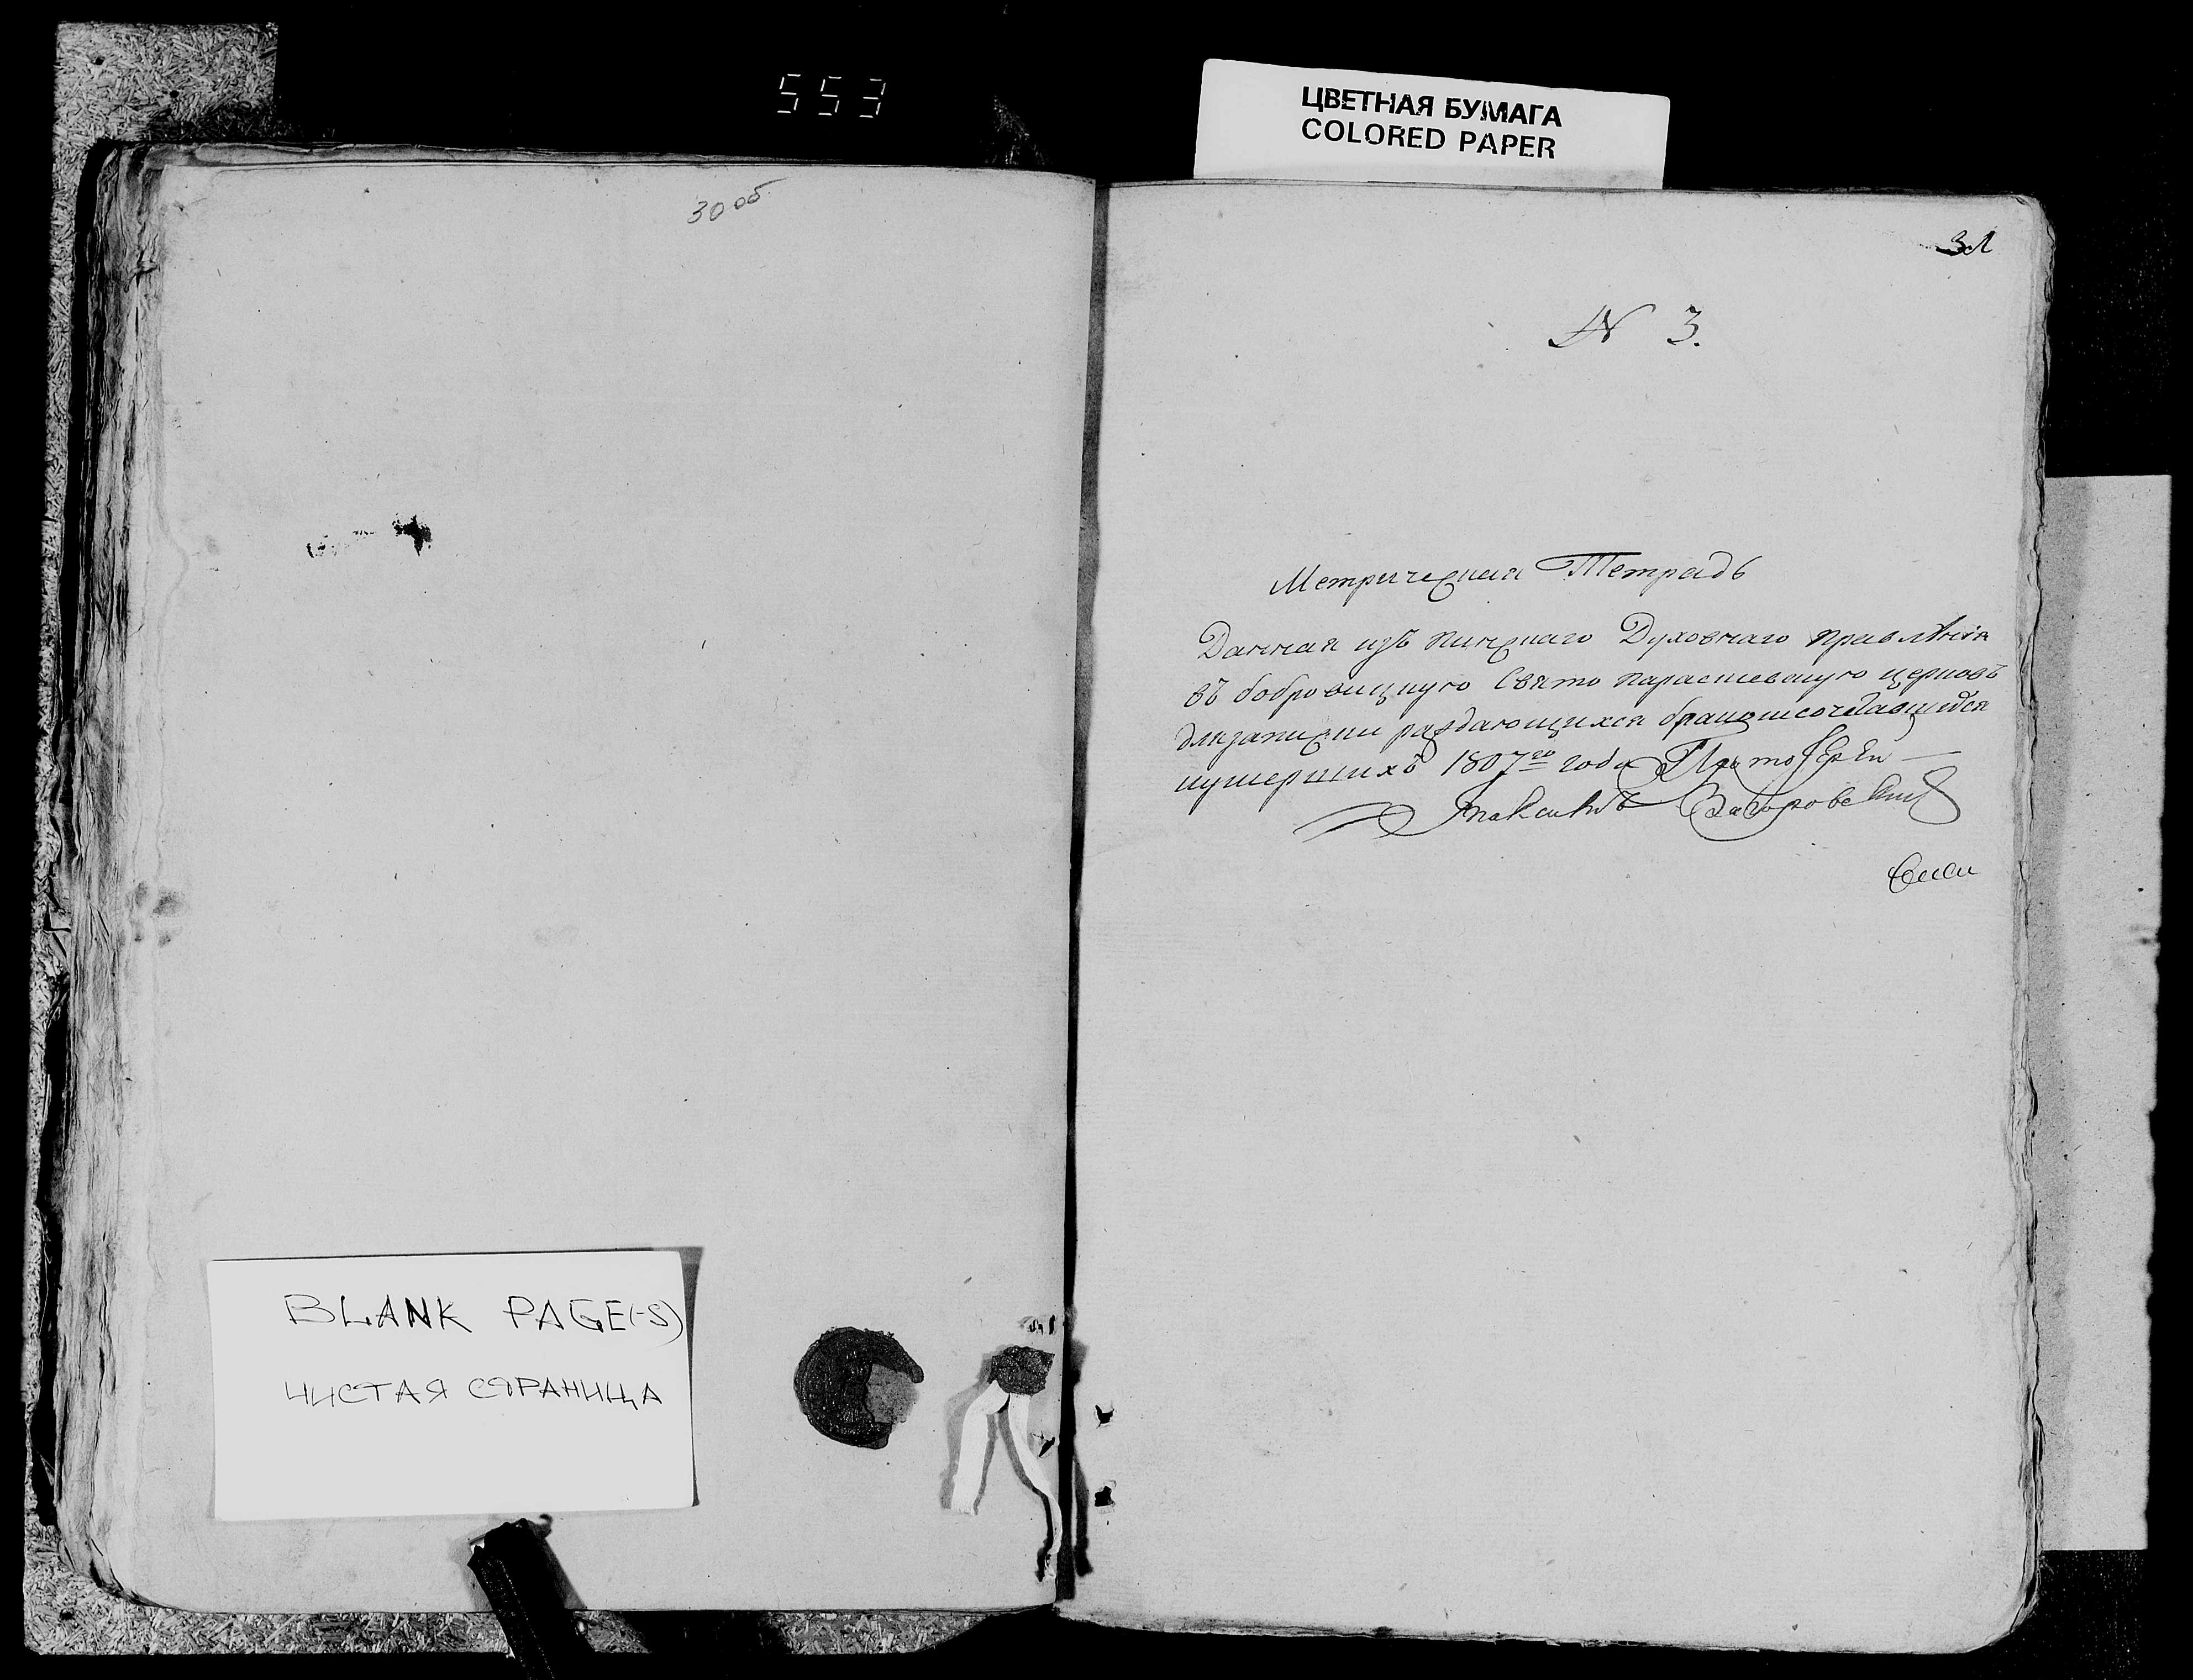 553
ЦВЕТНАЯ БУМАГА
COLORED PAPER
30 об
31
N 3.
Метрическая Тетрадь
Данная изъ пинскаго Духовнаго правлѣнія
въ бобровицкую Свято параскевскую церковь
длязаписки раждающихся бракомсочетающихся
иумершихъ 1807го года Протоіерей
Максимъ Загоровскій
BLANK PAGE(-S)
ЧИСТАЯ СТРАНИЦА